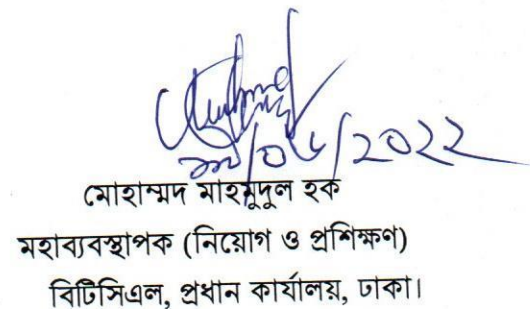 /০৬/২০২২
মোহাম্মদ মাহমুদুল হক
মহাব্যবস্থাপক (নিয়োগ ও প্রশিক্ষণ)
বিটিসিএল, প্রধান কার্যালয়, ঢাকা।